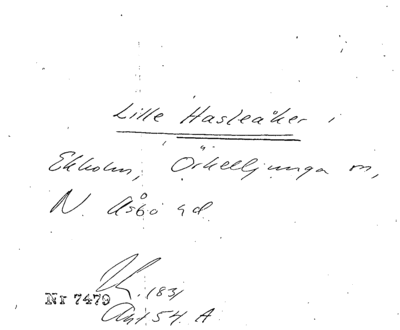 Lille Hasleåker i
Ekholm, Örkelljunga sn,
N. Åsbo hd
1831
Nr 7479
Akt 54 A